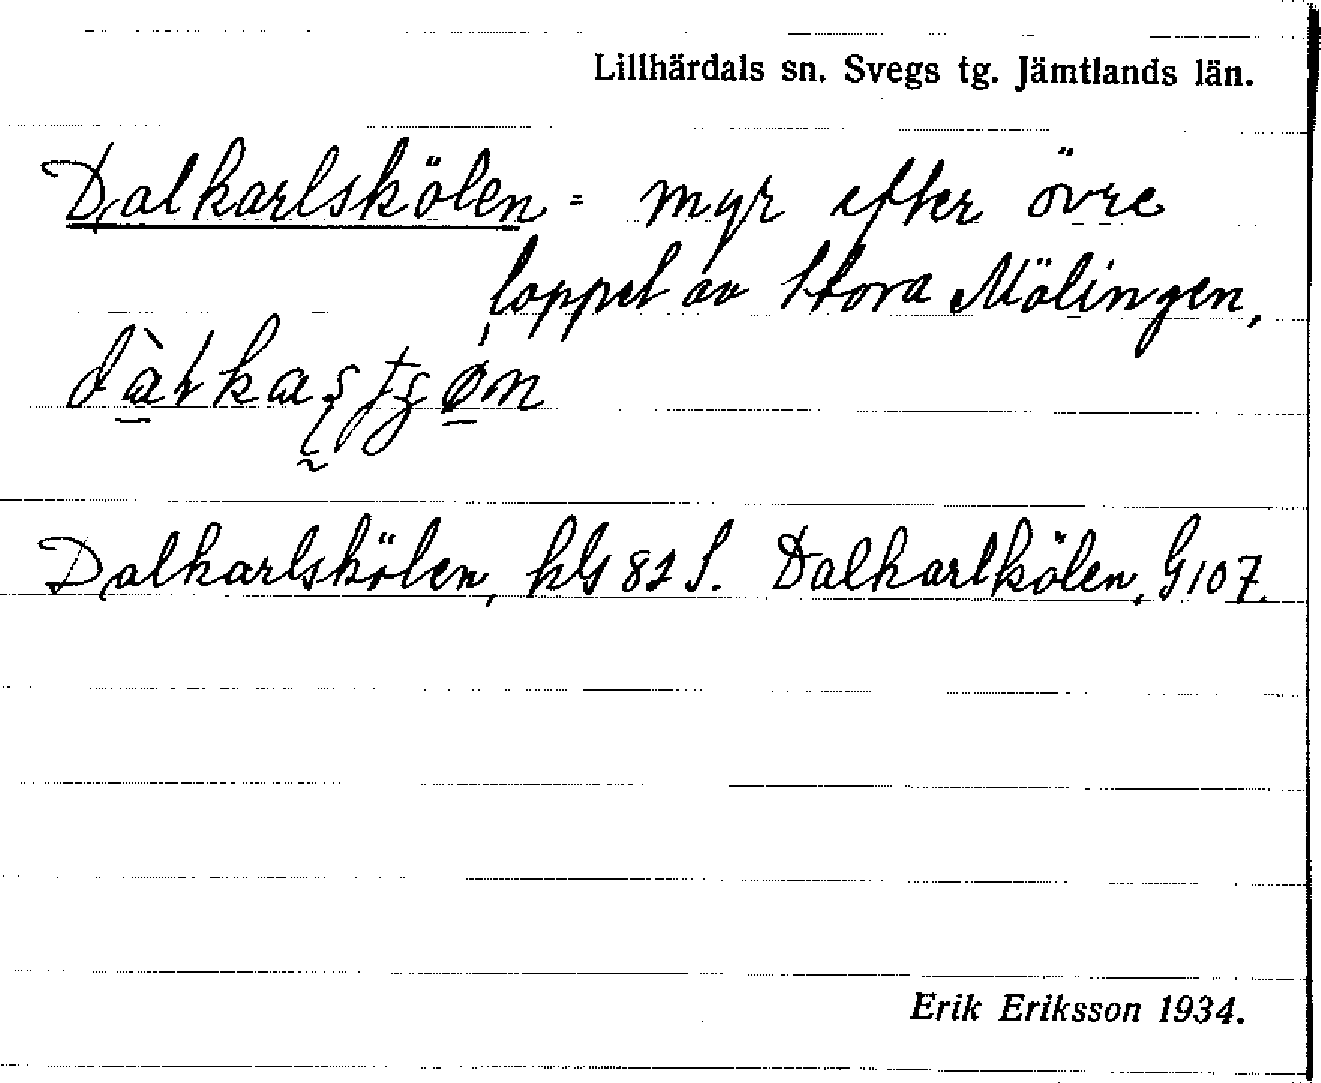 Lillhärdals sn. Svegs tg. Jämtlands län.
Dalkarlskölen = myr efter övre
loppet av Stora Mölingen,
Dalkarlskölen, kG 82 S. Dalkarlkölen, G 107.
Erik Eriksson 1934.